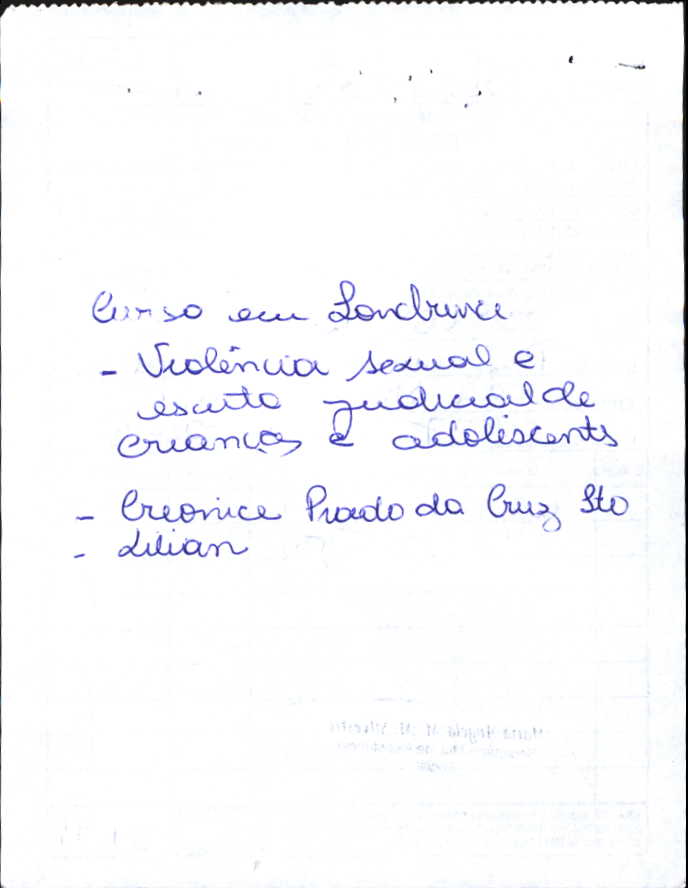 Curso em Londrina
- Violência sexual e
escuta judicial de
crianças e adoliscents
- Creonice Prado da Cruz Sto
- Lilian